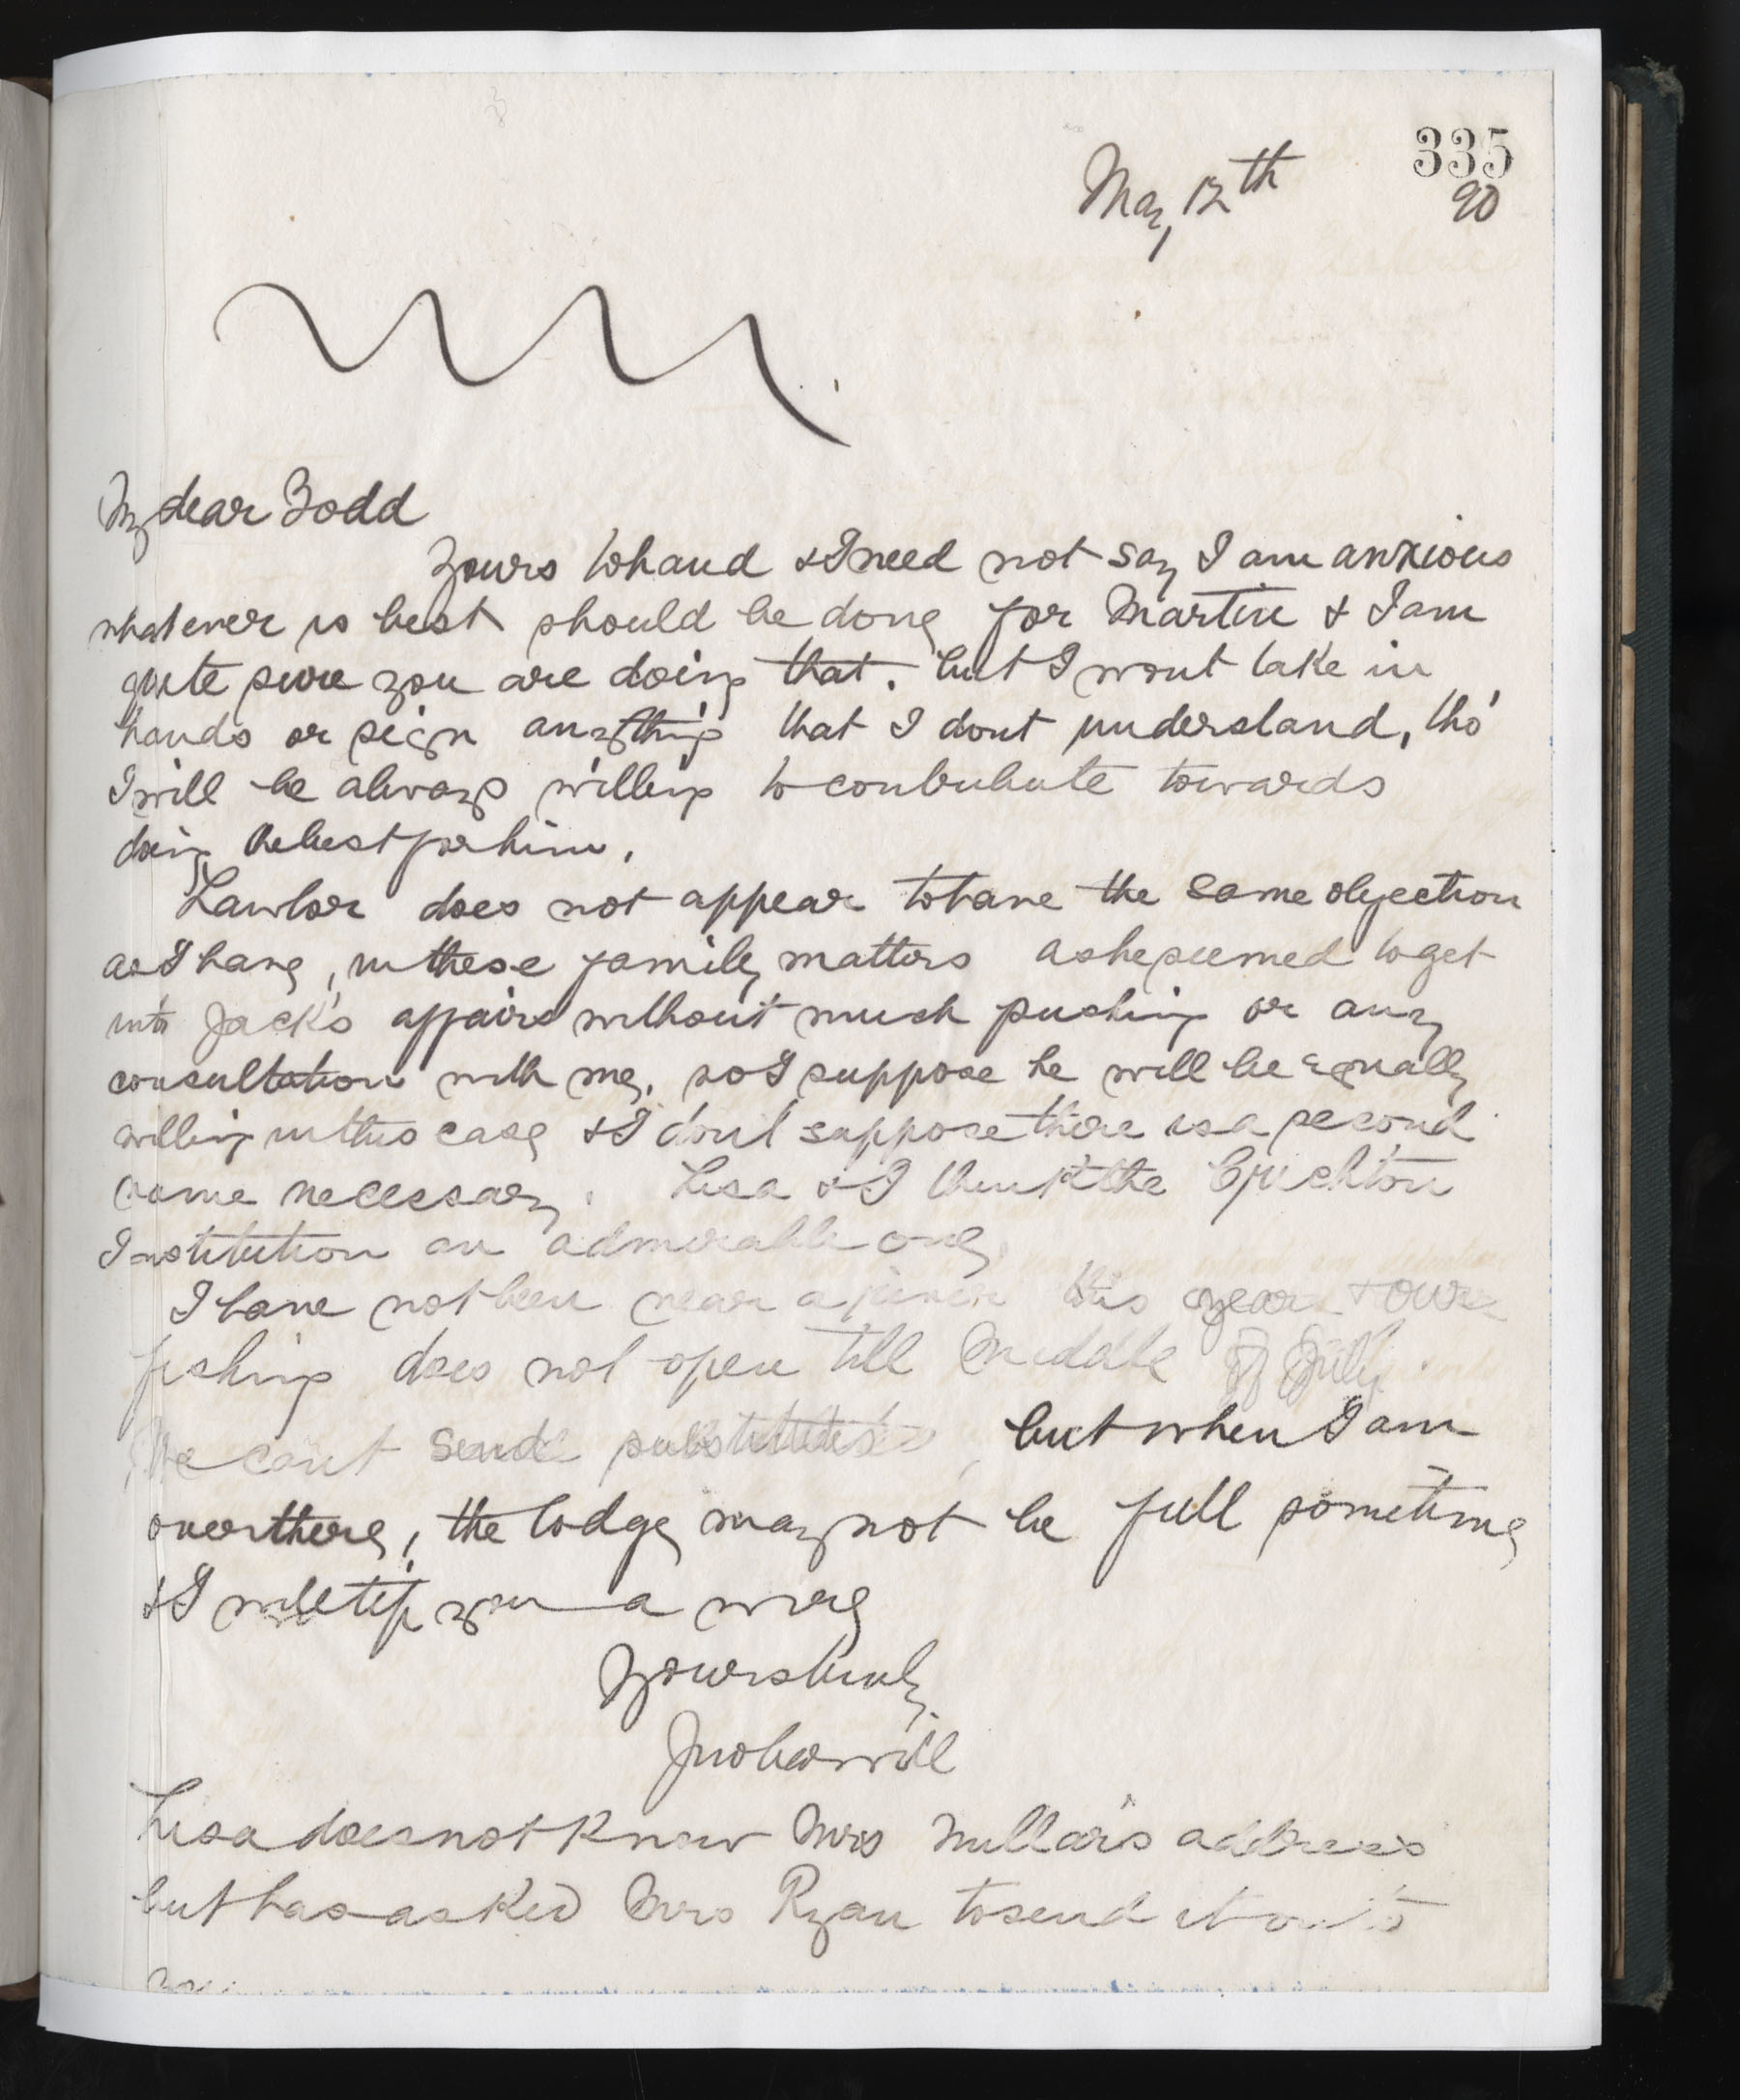 335
May 12th 90
My dear Todd
Yours to hand & I need not say I am anxious
whatever is best should be done for Martin & I am
quite sure you are doing that. but I wont take in
hands or sign anything that I dont understand, tho'
I will be always willing to contribute towards
doing the best for him.
Lawlor does not appear to have the same objection
as I have, in these family matters as he seemed to get
into Jack's affairs without much pushing or any
consultation with me, so I suppose he will be equally
willing in this case & I dont suppose there is a second
name necessary. Lisa & I think the Crichton
Institution an admirable one,
I have not been near a river this year & our
fishing does not open till Middle of July.
We cant send substitutes, but when I am
over there, the lodge may not be full sometime
& I will tip you a wire
Yours truly
Lisa does not know Mrs Millar's address
but has asked Mrs Ryan to send it on to
you